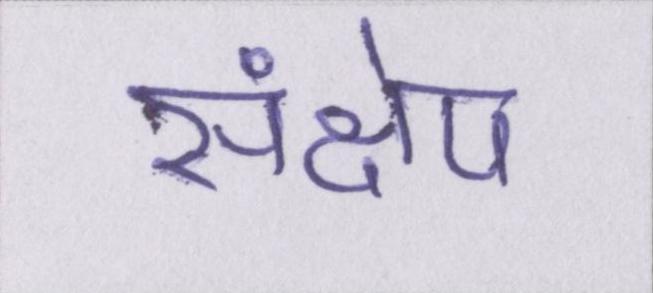 संक्षेप